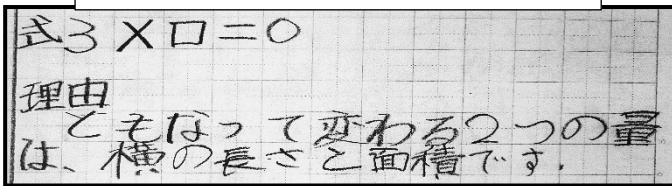 式3×□=○
理由
ともなって変わる2つの量
は、横の長さと面積です.